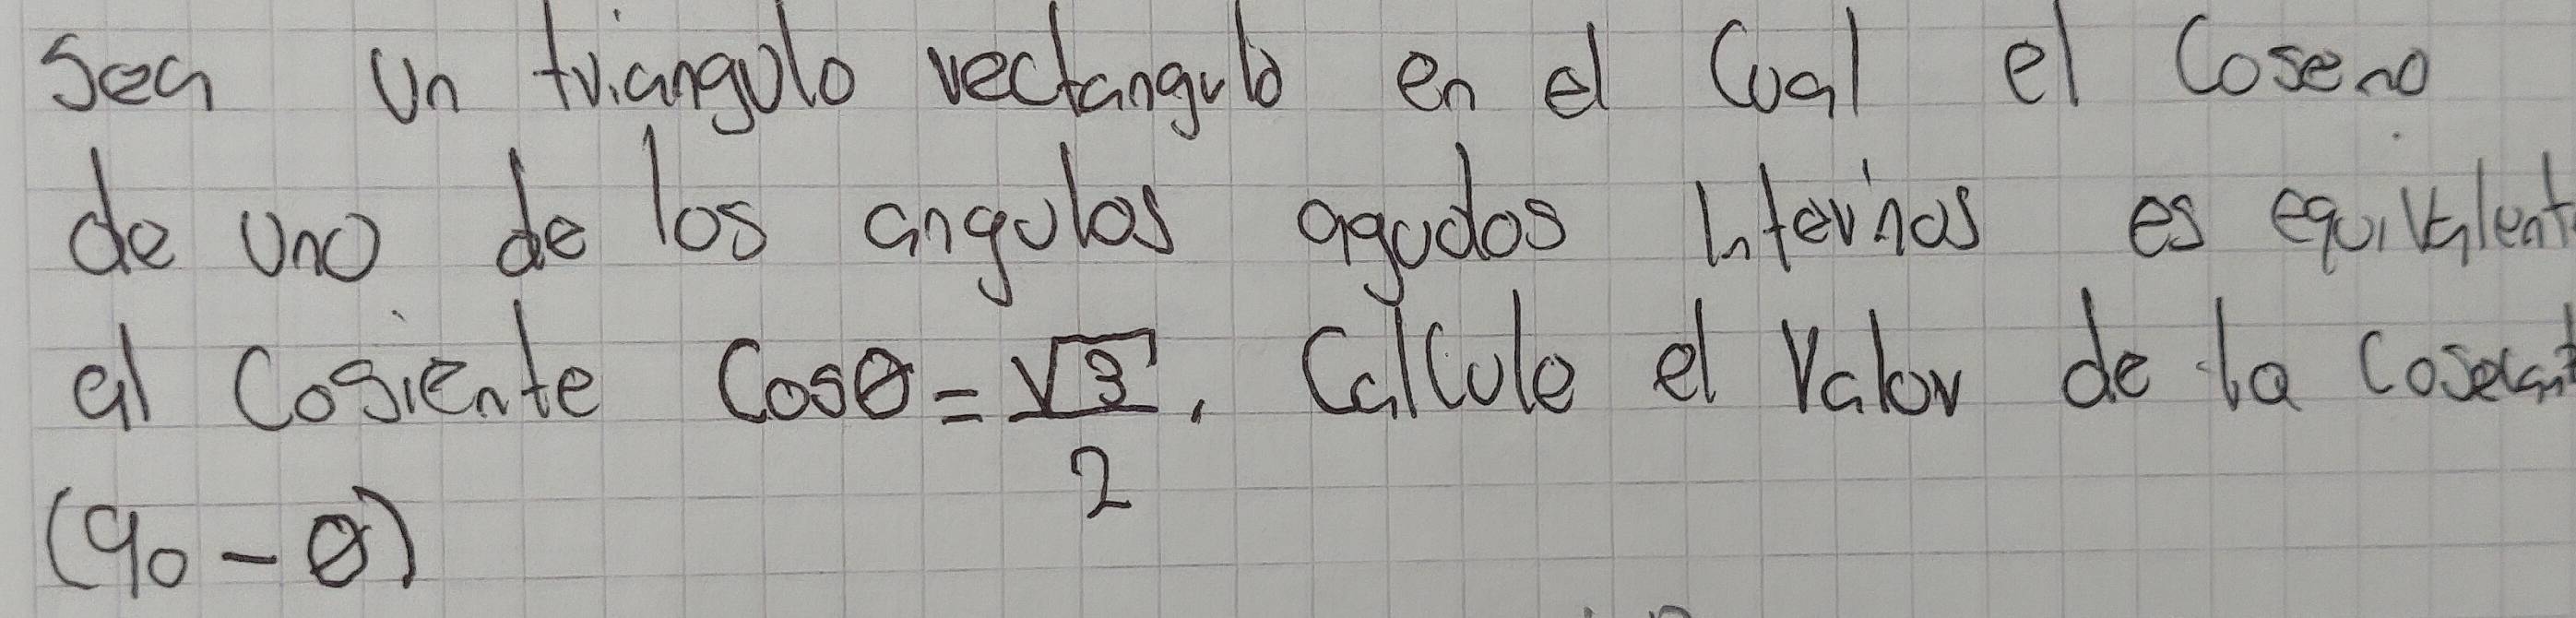 Sea un triangulo rectangulo en el cual el coseno
de uno de los angulos agudos internos es equivalent
al cosiente Cosθ = √3/2. Calcule el valor de la cosecant
(90 - θ)